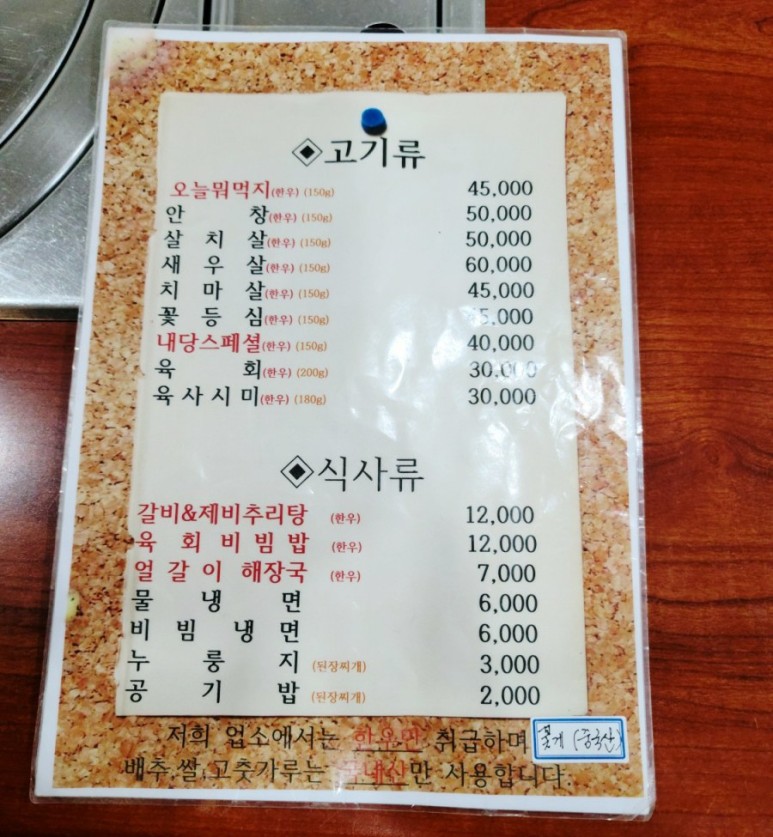 ◈고기류
오늘뭐먹지(한우) (150g) 45,000
안 창(한우) (150g) 50,000
살 치 살(한우) (150g) 50,000
새 우 살(한우) (150g) 60,000
치 마 살(한우) (150g) 45,000
꽃 등 심(한우) (150g)
내당스페셜(한우) (150g) 40,000
육 회(한우) (200g) 30,000
육 사 시 미(한우) (180g) 30,000
◈식사류
갈비&제비추리탕 (한우) 12,000
육 회 비 빔 밥 (한우) 12,000
얼 갈 이 해장국 (한우) 7,000
물 냉 면 6,000
비 빔 냉 면 6,000
누 룽 지 (된장찌개) 3,000
공 기 밥 (된장찌개) 2,000
저희 업소에서는 한우만 취급하며
꽃게 (중국산)
배추,쌀,고춧가루는 국내산만 사용합니다.